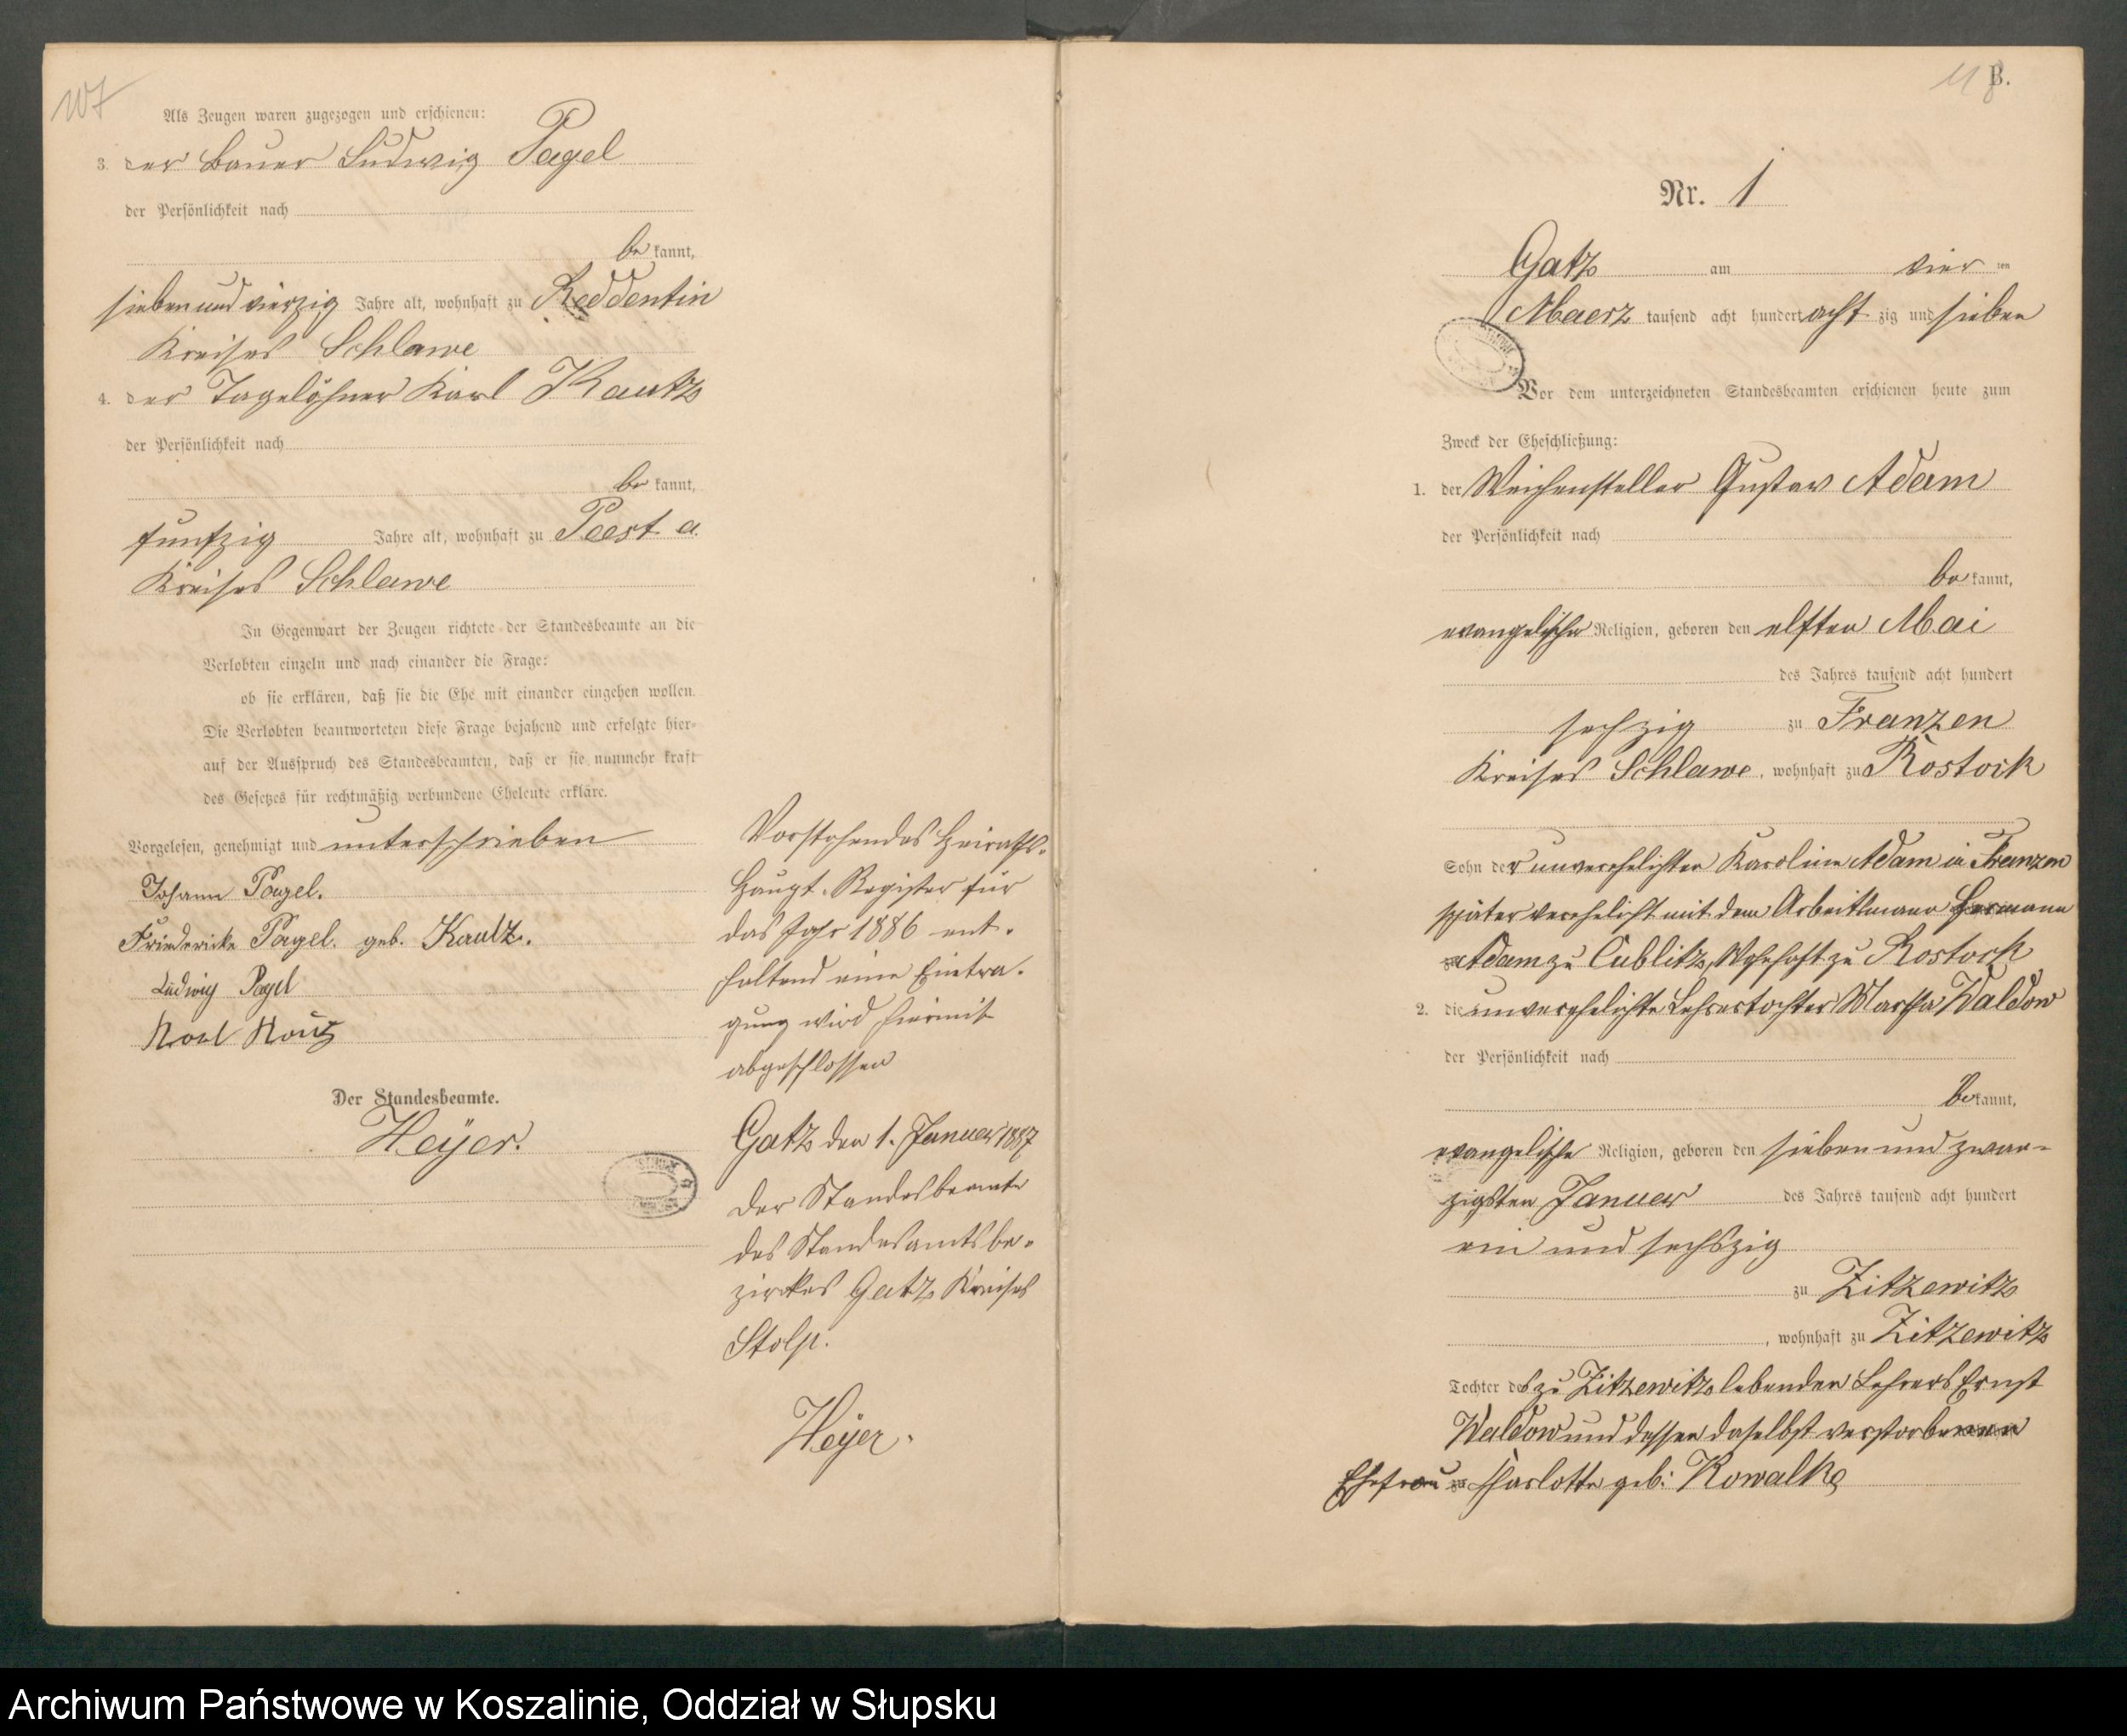 107
Als Zeugen waren zugezogen und erschienen:
3. der Bauer Ludwig Pagel
der Persönlichkeit nach
be kannt,
siebenundvierzig Jahre alt, wohnhaft zu Reddentin
Kreises Schlawe
4. der Tagelöhner Karl Kautz
der Persönlichkeit nach
be kannt,
funfzig Jahre alt, wohnhaft zu Peest a.
Kreises Schlawe
In Gegenwart der Zeugen richtete der Standesbeamte an die
Verlobten einzeln und nach einander die Frage:
ob sie erklären, daß sie die Ehe mit einander eingehen wollen.
Die Verlobten beantworteten diese Frage bejahend und erfolgte hier-
auf der Ausspruch des Standesbeamten, daß er sie nunmehr kraft
des Gesetzes für rechtmäßig verbundene Eheleute erkläre.
Vorgelesen, genehmigt und unterschrieben
Johann Pagel.
Friedericke Pagel. geb. Kautz.
Ludwig Pagel
Karl Kautz
Der Standesbeamte.
Heyer.
Vorstehendes Heiraths-
Haupt-Register für
das Jahr 1886 ent-
haltend eine Eintra-
gung wird hiermit
abgeschlossen
Gatz den 1. Januar 1887
Der Standesbeamte
des Standesamtsbe-
zirkes Gatz Kreises
Stolp.
Heyer.
118
B.
Nr. 1
Gatz am vier ten
Maerz tausend acht hundert acht zig und sieben
Vor dem unterzeichneten Standesbeamten erschienen heute zum
Zweck der Eheschließung:
1. der Weichensteller Gustav Adam
der Persönlichkeit nach
be kannt,
evangelischer Religion, geboren den elften Mai
des Jahres tausend acht hundert
sechzig zu Franzen
Kreises Schlawe, wohnhaft zu Rostock
Sohn der unverehelichten Karoline Adam in Franzen
später verehelicht mit dem Arbeitsmann Hermann
Adam zu Cublitz, Wohnhaft zu Rostock
2. die unverehelichte Lehrertochter Martha Waldow
der Persönlichkeit nach
be kannt,
evangelische Religion, geboren den sieben und zwan-
zigsten Januar des Jahres tausend acht hundert
ein und sechszig
zu Zitzewitz
, wohnhaft zu Zitzewitz
Tochter des zu Zitzewitz lebenden Lehrers Ernst
Waldow und dessen daselbst verstorbenen
Ehefrau Charlotte geb: Kowalke
Archiwum Państwowe w Koszalinie, Oddział w Słupsku